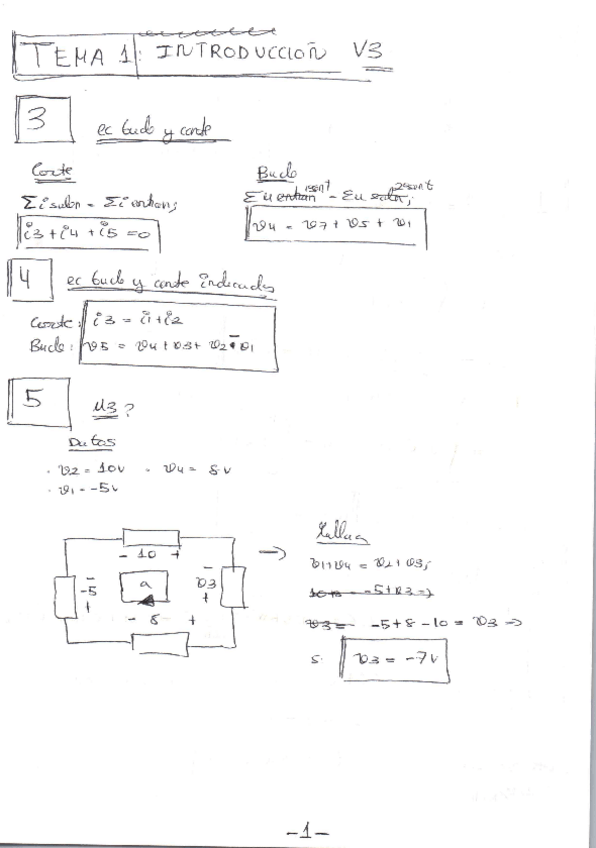 TEMA 1: INTRODUCCIÓN V3
3 ec bucle y corte
Corte
Σi salen = Σi entran;
i3 + i4 + i5 = 0
Bucle
1 sent 2 sent
Σu entran = Σu salen;
v4 = v7 + v5 + v1
4 ec bucle y corte indicadas
Corte: i3 = i1 + i2
Bucle: v5 = v4 + v3 + v2 - v1
5 u3?
Datos
· v2 = 10v · v4 = 8v
· v1 = -5v
- 10 +
- -5 +
a
- v3 +
- 8 +
→
v1+v4 = v2+v3;
-5+v3 =>
v3 = -5+8-10 = v3 =>
v3 = -7v
-1-